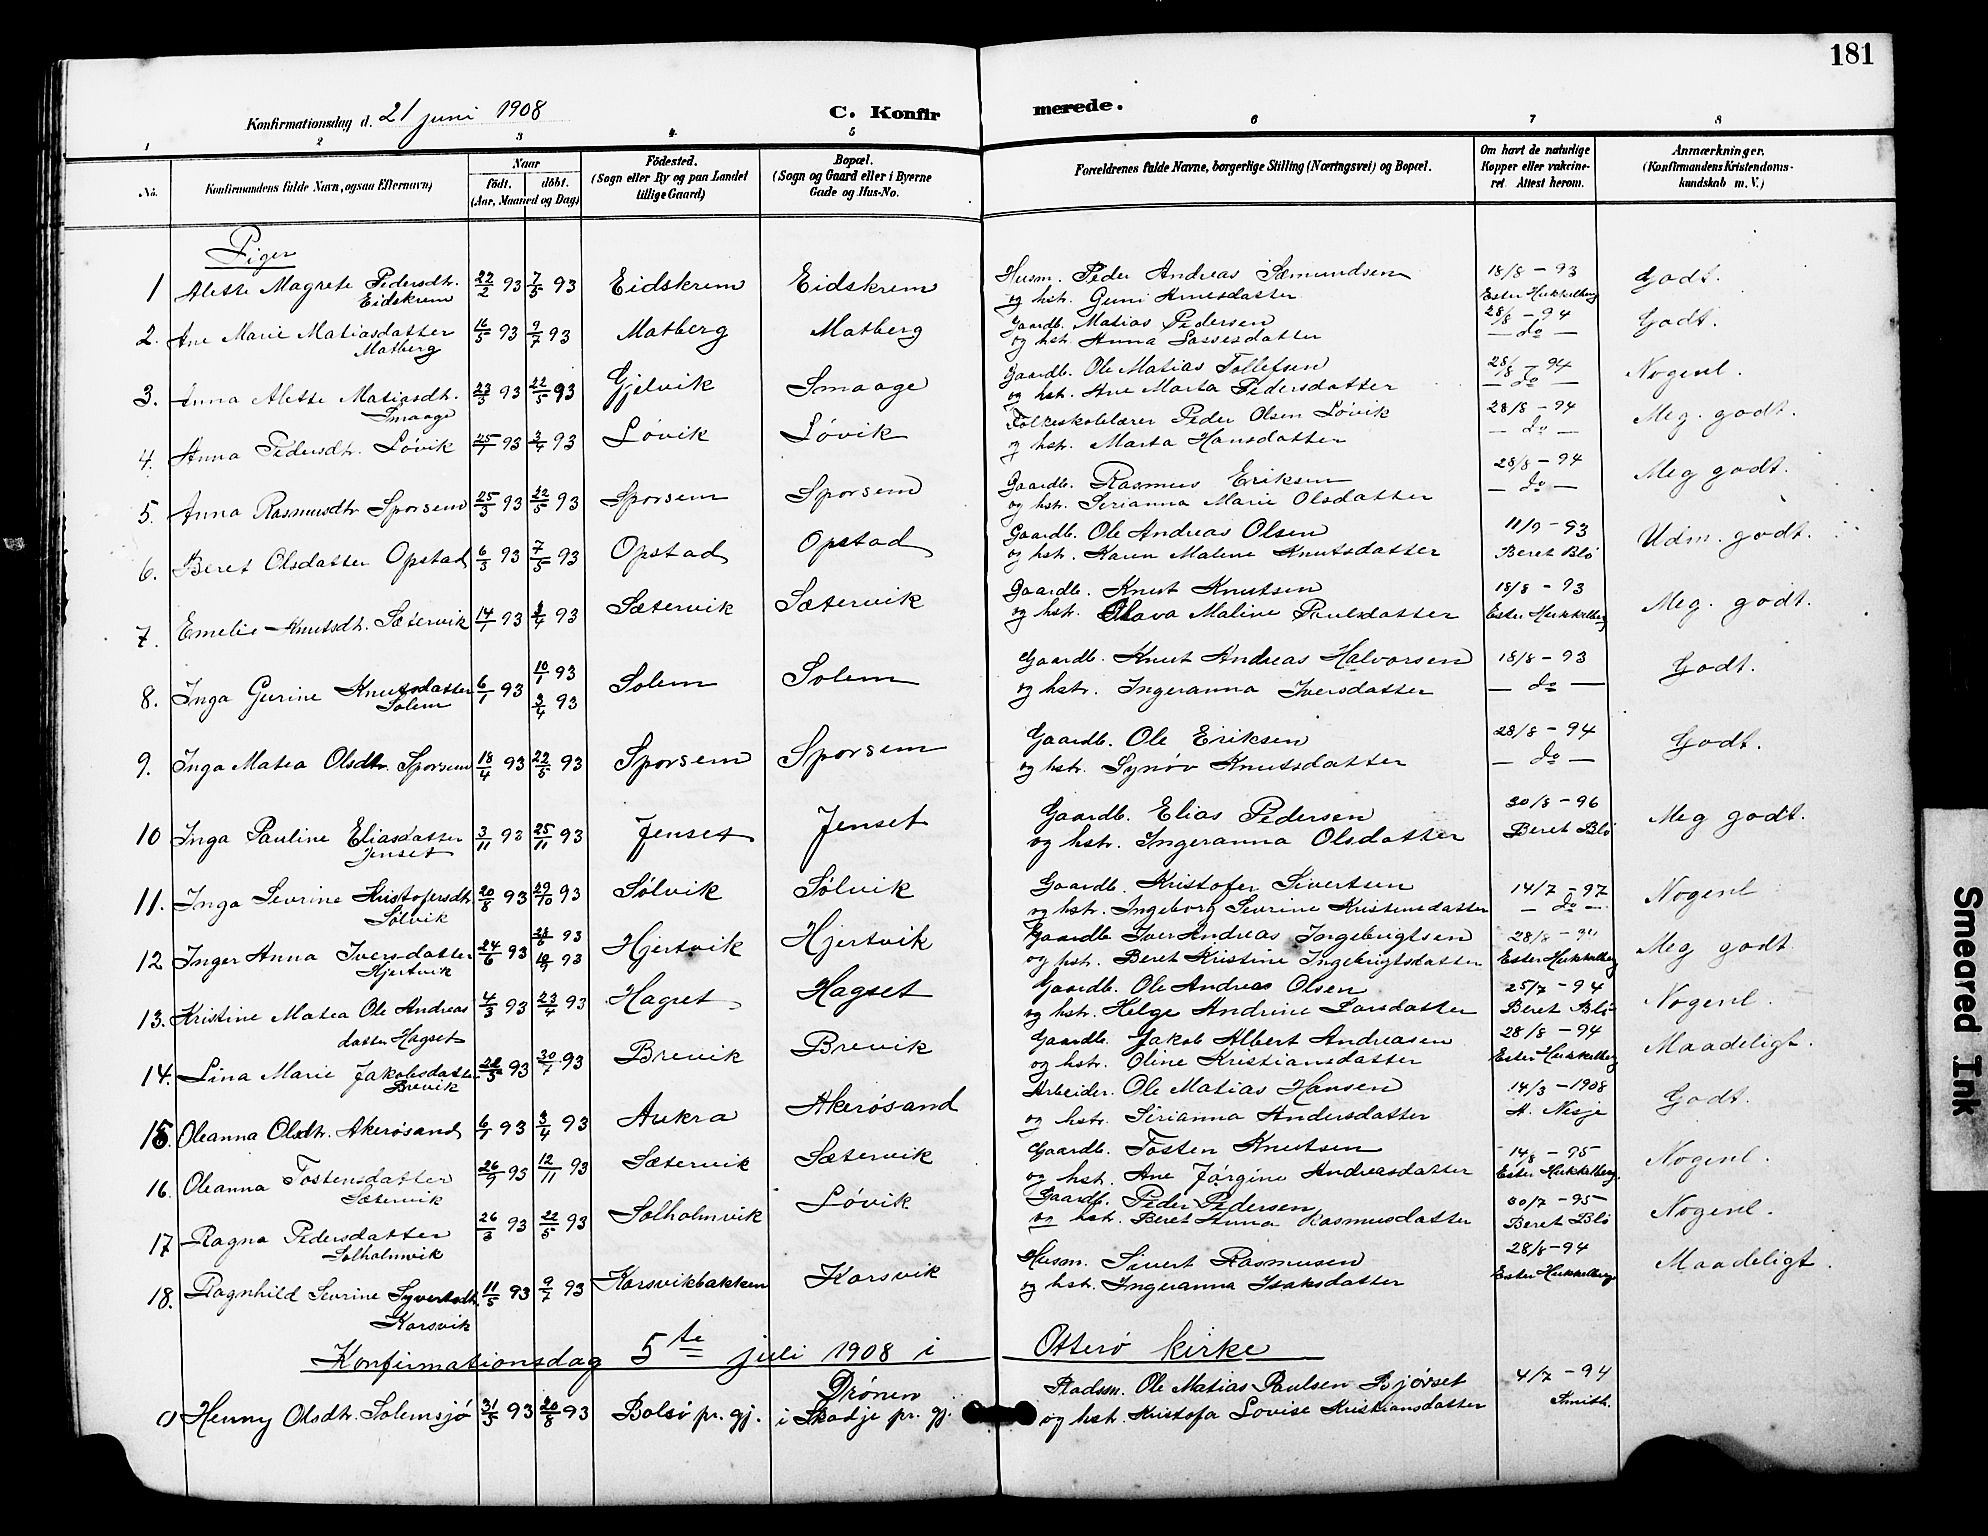 181
Konfirmationsdag d. 21 juni 1908
C. Konfir merede.
1 2 3 4 5 6 7 8
No.
Konfirmandens fulde Navn, ogsaa Efternavn)
Naar
født. døbt.
(Aar, Maaned og Dag)
Fødested.
(Sogn eller By og paa Landet
tillige Gaard)
Bopæl.
(Sogn og Gaard eller i Byerne
Gade og Hus-No.
Forældrenes fulde Navne, borgerlige Stilling (Næringsvei) og Bopæl.
Om havt de naturlige
Kopper eller vakcine-
ret. Attest herom.
Anmærkninger.
(Konfirmandens Kristendoms-
kundskab m. V.)
Piger
1 Alette Magrete Pedersdtr. 22/2 93 7/5 93 Eidskrem Eidskrem Husm. Peder Andreas Sæmundsen 18/8 - 93 Godt.
Eidskrem og hstr. Guni Knutsdatter Ester Hukkelberg
2. Ane Marie Matiasdatter 16/5 93 9/7 93 Matberg Matberg Gaardb. Matias Pedersen 28/8 - 94 Godt.
Matberg og hstr. Anna Lassesdatter — do —
3. Anna Alette Matiasdtr. 23/3 93 22/5 93 Gjelvik Smaage Gaardb. Ole Matias Tollefsen 28/8 - 94 Nogenl.
Smaage og hstr. Ane Marta Pedersdatter — do —
4. Anna Pedersdtr. Løvik 25/1 93 3/4 93 Løvik Løvik Folkeskolelærer Peder Olsen Løvik 28/8 - 94 Meg. godt.
og hstr. Marta Hansdatter — do —
5. Anna Rasmusdtr Sporsem 25/3 93 22/5 93 Sporsem Sporsem Gaardb. Rasmus Eriksen 28/8 - 94 Meg godt.
og hstr. Serianna Marie Olsdatter — do —
6. Beret Olsdatter Opstad 6/3 93 7/5 93 Opstad Opstad Gaardb. Ole Andreas Olsen 11/9 - 93 Udm. godt.
og hstr. Karen Malene Knutsdatter Beret Blø
7. Emelie Knutsdt. Sætervik 14/1 93 3/4 93 Sætervik Sætervik Gaardb. Knut Knutsen 18/8 - 93 Meg. godt.
og hstr. Olava Maline Paulsdatter Ester Hukkelberg
8. Inga Gurine Knutsdatter 6/1 93 10/1 93 Solem Solem Gaardb. Knut Andreas Halvorsen 18/8 - 93 Godt.
Solem 3/4 93 og hstr. Ingeranna Iversdatter — do —
9. Inga Matea Olsdtr. Sporsem 18/4 93 22/5 93 Sporsem Sporsem Gaardb. Ole Eriksen 28/8 - 94 Godt.
og hstr. Synøv Knutsdatter — do —
10 Inga Pauline Eliasdatter 3/11 93 25/11 93 Jenset Jenset Gaardb. Elias Pedersen 20/8 - 96 Meg godt.
Jenset og hstr. Ingeranna Olsdatter Beret Blø
11. Inga Sevrine Kristofersdtr. 20/8 93 29/10 93 Sølvik Sølvik Gaardb. Kristofer Sivertsen 14/7 - 97 Nogenl
Sølvik og hstr. Ingeborg Sevrine Kristensdatter — do —
12 Inger Anna Iversdatter 24/6 93 28/6 93 Hjertvik Hjertvik Gaardb Iver Andreas Ingebrigtsen 28/8 - 94 Meg godt
Hjertvik 93 og hstr. Beret Kristine Ingebrigtsdatter Ester Hukkelberg
13. Kristine Matea Ole Andreas 4/3 93 23/4 93 Hagset Hagset Gaardb. Ole Andreas Olsen 25/7 - 94 Nogenl.
datter Hagset og hstr. Helge Andrine Larsdatter Beret Blø
14. Lina Marie Jakobsdatter 93 30/7 93 Brevik Brevik Gaardb. Jakob Albert Andreasen 28/8 - 94 Maadeligt.
Brevik og hstr. Oline Kristiansdatter Ester Hukkelberg
15. Oleanna Olsdtr. Akerøsand 6/1 93 3/4 93 Aukra Akerøsand Arbeider. Ole Matias Hansen 14/3 - 1908 Godt.
og hstr. Serianna Andersdatter A. Nisje
16. Oleanna Tostensdatter 26/9 93 12/11 93 Sætervik Sætervik Gaardb. Tosten Knutsen 14/8 - 95 Nogenl.
Sætervik og hst. Ane Jørgine Andreasdatter Ester Hukkelberg
17 Ragna Pedersdatter 26/3 93 22/5 93 Solholmvik Løvik Gaardb. Peder Pedersen 30/7 - 95 Nogenl.
Solholmvik og hstr. Beret Anna Rasmusdatter Beret Blø
18. Ragnhild Sevrine Syvertsdt. 11/5 93 9/7 93 Korsvikbakken Korsvik Husm. Sivert Rasmusen 28/8 - 94 Maadeligt.
Korsvik og hstr. Ingeranna Isaksdatter Ester Hukkelberg
Konfirmationsdag 5te juli 1908 i Otterø kirke
Henny Olsdtr. Solemsjø 31/3 93 20/8 93 Bolsø pr. gj. Drønen i Skodje pr. gj. Pladsm. Ole Matias Paulsen Bjørset 4/7 - 94
og hstr. Kristofa Lovise Kristiansdatter Smith.
Smeared Ink